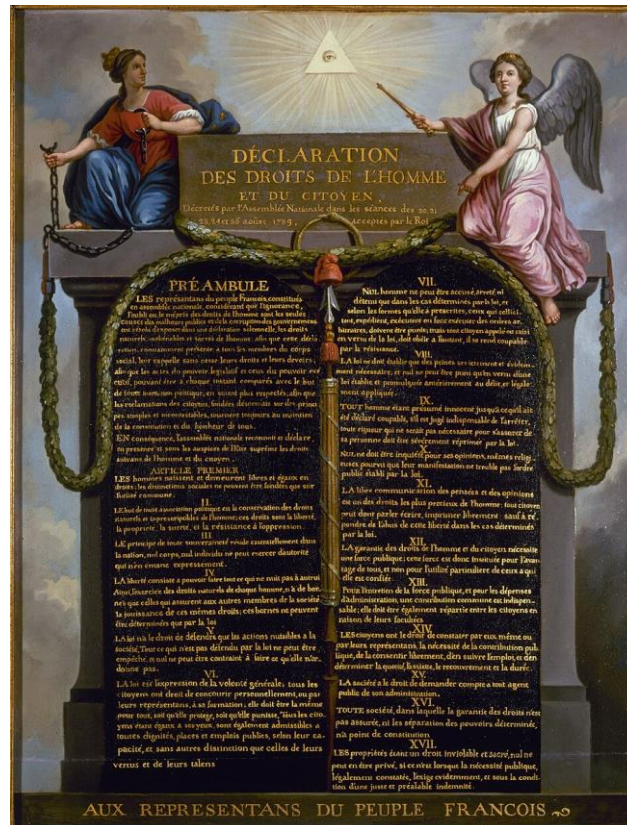 DÉCLARATION
DES DROITS DE L'HOMME
ET DU CITOYEN,
Décretés par l'Assemblée Nationale dans les séances des 20, 21
23, 24 et 26 août 1789, acceptés par le Roi
PRÉAMBULE
LES représentans du peuple François, constitués
en assemblée nationale, considérant que l'ignorance,
l'oubli ou le mépris des droits de l'homme sont les seules
causes des malheurs publics et de la corruption des gouvernemens
ont résolu d'exposer dans une déclaration solemnelle, les droits
naturels, inaliénables et sacrés de l'homme; afin que cette décla-
ration, constamment présente a tous les membres du corps
social, leur rappelle sans cesse leurs droits et leurs devoirs;
afin que les actes du pouvoir législatif et ceux du pouvoir exé-
cutif, pouvant être a chaque instant comparés avec le but
de toute institution politique, en soient plus respectés; afin que
les reclamations des citoyens, fondées désormais sur des princi-
pes simples et incontestables, tournent toujours au maintien
de la constitution et du bonheur de tous.
EN conséquence, l'assemblée nationale reconnoit et déclare,
en présence et sous les auspices de l'Etre suprême les droits
suivans de l'homme et du citoyen.
ARTICLE PREMIER
LES hommes naissent et demeurent libres et égaux en
droits; les distinctions sociales ne peuvent être fondées que sur
l'utilité commune.
II.
LE but de toute association politique est la conservation des droits
naturels et imprescriptibles de l'homme; ces droits sont la liberté,
la propriété, la sureté, et la résistance à l'oppression.
III.
LE principe de toute souveraineté réside essentiellement dans
la nation, nul corps, nul individu ne peut exercer d'autorité
qui n'en émane expressement.
IV.
LA liberté consiste a pouvoir faire tout ce qui ne nuit pas à autrui
Ainsi, l'exercice des droits naturels de chaque homme, n'a de bor-
nes que celles qui assurent aux autres membres de la société
la jouissance de ces mêmes droits; ces bornes ne peuvent
être déterminées que par la loi
V.
LA loi n'a le droit de défendre que les actions nuisibles a la
société. Tout ce qui n'est pas défendu par la loi ne peut être
empêché, et nul ne peut être contraint à faire ce qu'elle n'or-
donne pas.
VI.
LA loi est l'expression de la volonté générale; tous les
citoyens ont droit de concourir personnellement, ou par
leurs représentans, à sa formation; elle doit être la même
pour tous, soit qu'elle protege, soit qu'elle punisse. Tous les cito-
yens étant égaux a ses yeux, sont également admissibles a
toutes dignités, places et emplois publics, selon leur ca-
pacité, et sans autres distinction que celles de leurs
vertus et de leurs talens
VII.
NUL homme ne peut être accusé, arreté, ni
détenu que dans les cas déterminés par la loi, et
selon les formes qu'elle a prescrites, ceux qui sollici-
tent, expédient, exécutent ou font exécuter des ordres ar-
bitraires, doivent être punis; mais tout citoyen appelé ou saisi
en vertu de la loi, doit obéir a l'instant, il se rend coupable
par la résistance.
VIII.
LA loi ne doit établir que des peines strictement et évidem-
ment nécessaire, et nul ne peut être puni qu'en vertu d'une
loi établie et promulguée antérieurement au délit, et légale-
ment appliquée.
IX.
TOUT homme étant présumé innocent jusqu'a ce qu'il ait
été déclaré coupable, s'il est jugé indispensable de l'arrêter,
toute rigueur qui ne serait pas nécessaire pour s'assurer de
sa personne doit être sévèrement réprimée par la loi.
X.
NUL ne doit être inquiété pour ses opinions, mêmes religi-
euses pourvu que leur manifestation ne trouble pas l'ordre
public établi par la loi.
XI.
LA libre communication des pensées et des opinions
est un des droits les plus precieux de l'homme; tout citoyen
peut donc parler écrire, imprimer librement: sauf à ré-
pondre de l'abus de cette liberté dans les cas déterminés
par la loi.
XII.
LA garantie des droits de l'homme et du citoyen nécessite
une force publique; cette force est donc instituée pour l'avan-
tage de tous, et non pour l'utilité particuliere de ceux a qui
elle est confiée.
XIII.
Pour l'entretien de la force publique, et pour les dépenses
d'administration, une contribution commune est indispen-
sable; elle doit être également répartie entre les citoyens en
raison de leurs facultées
XIV.
LES citoyens ont le droit de constater par eux même ou
par leurs représentans, la nécessité de la contribution pub-
lique, de la consentir librement, d'en suivre l'emploi, et d'en
déterminer la quotité, l'assiette, le recouvrement et la durée.
XV.
LA société a le droit de demander compte a tout agent
public de son administration.
XVI.
TOUTE société, dans laquelle la garantie des droits n'est
pas assurée, ni les séparation des pouvoirs déterminée,
n'a point de constitution
XVII.
LES propriétés étant un droit inviolable et sacré, nul ne
peut en être privé, si ce n'est lorsque la nécessité publique,
légalement constatée, l'exige evidemment, et sous la condi-
tion d'une juste et préalable indemnité.
AUX REPRESENTANS DU PEUPLE FRANCOIS